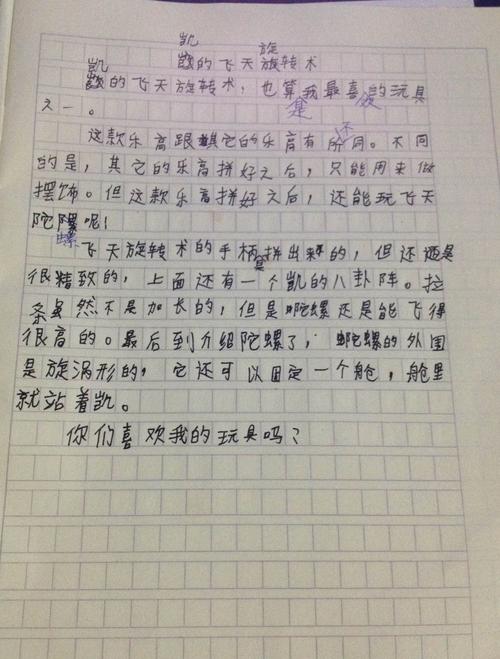 凯的飞天旋转术
凯的飞天旋转术,也算是我最喜欢的玩具
之一。
这款乐高跟其它的乐高有所不同。不同
的是,其它的乐高拼好之后,只能用来做
摆饰。但这款乐高拼好之后,还能玩飞天
陀螺呢!
飞天旋转术的手柄是拼出来的,但还是
很精致的,上面还有一个凯的八卦阵。拉
条虽然不是加长的,但是陀螺还是能飞得
很高的。最后到介绍陀螺了,陀螺的外围
是旋涡形的,它还可以固定一个舱,舱里
就站着凯。
你们喜欢我的玩具吗?